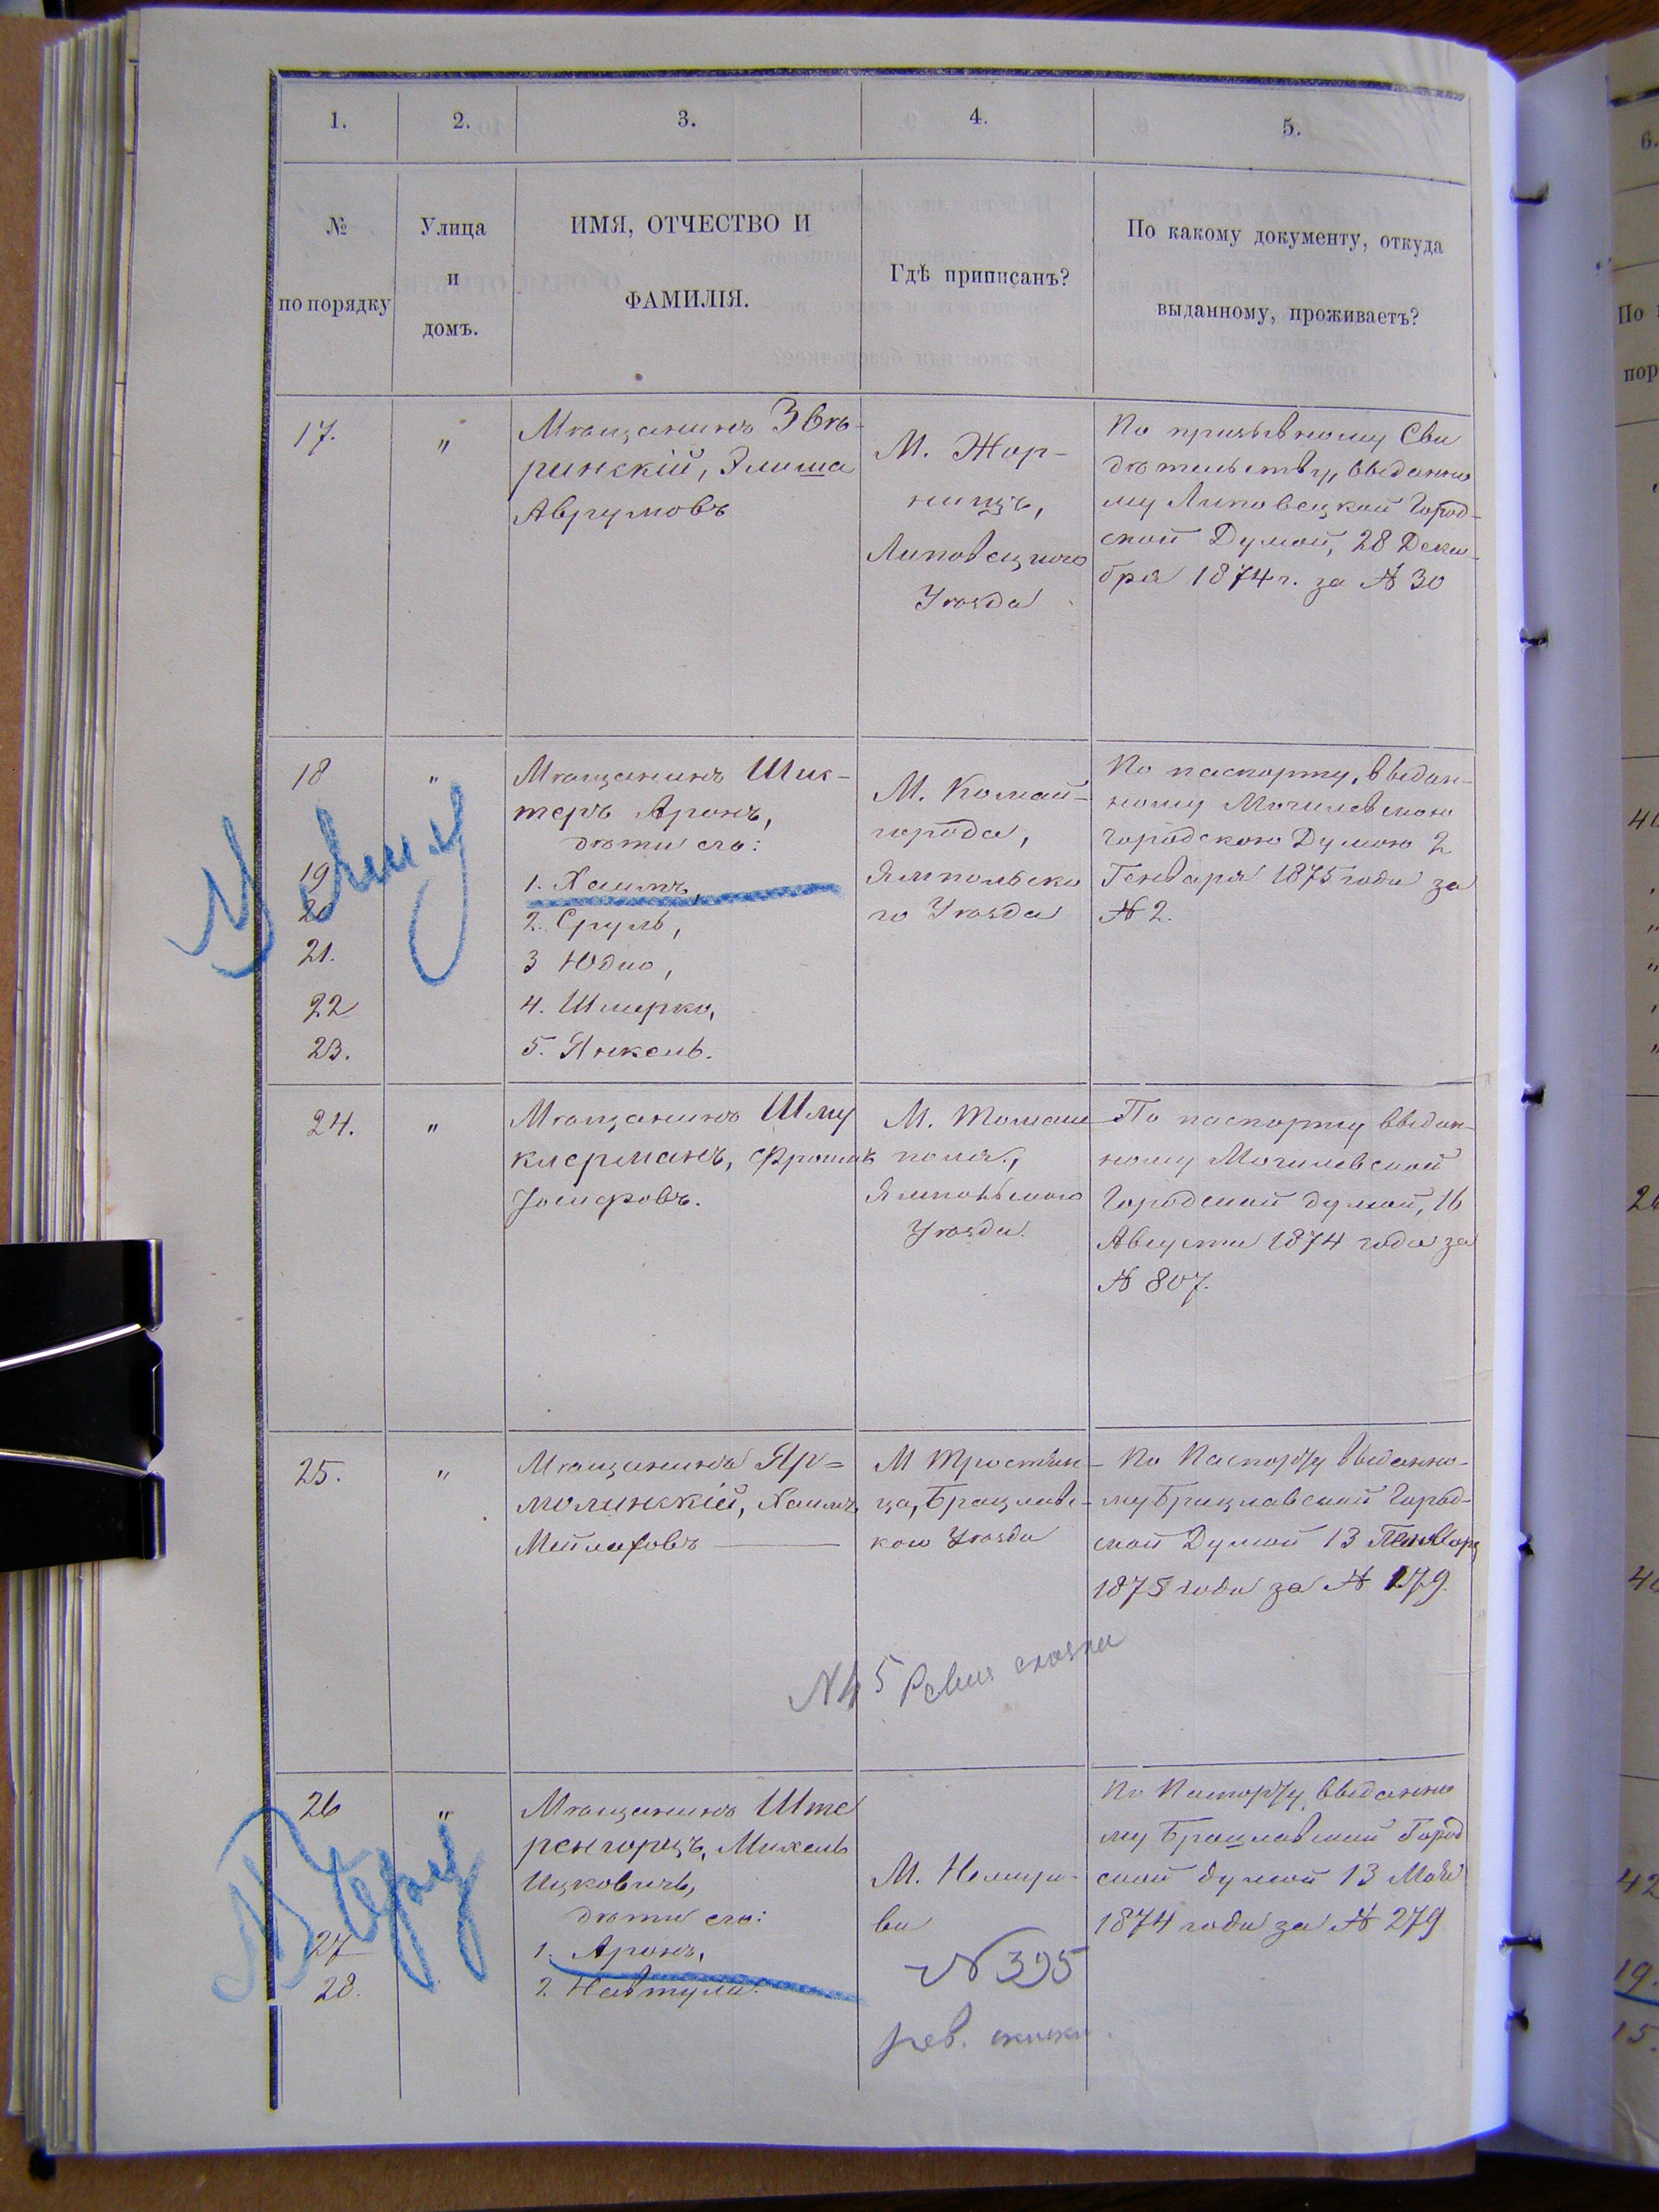 1. 2. 3. 4. 5.
№ по порядку
Улица и домъ.
ИМЯ, ОТЧЕСТВО И ФАМИЛІЯ.
Гдѣ приписанъ?
По какому документу, откуда выданному, проживаетъ?
17. "
Мѣщанинъ Звѣ-
ринскій, Элиша
Аврумовъ
М. Жор-
нищъ,
Липовецкаго
Уѣзда
По призывному Сви
дѣтельству, выданно
му Липовецкой Город-
ской Думой, 28 Декаб-
бря 1874 г. за № 30
18 "
Мѣщанинъ Шпик-
теръ Аронъ,
дѣти его:
19 1. Хаимъ,
20 2. Сруль,
21. 3 Юдко,
22 4. Шмерко,
23. 5. Янкель.
М. Комай-
города,
Ямпольска
го Уѣзда
По паспорту, выдан-
ному Могилевскою
Городскою Думою 2
Генваря 1875 года за
№ 2.
24. "
Мѣщанинъ Шму
клерманъ, Фроимъ
Іосифовъ.
М. Томаш
поля,
Ямпольскаго
Уѣзда.
По паспорту выдан-
ному Могилевской
Городской думой, 16
Августа 1874 года за
№ 807.
25. "
Мѣщанинъ Яр=
молинскій, Хаимъ
Мейлаховъ
М Тростян-
ца, Брацлавс-
каго Уѣзда
По Паспорту выданно-
му Брацлавской Город-
ской Думой 13 Генваря
1875 года за № 279.
№ 45 Ревиз сказки
26 "
МѣщанинъШте
ренгорцъ, Михель
Ицковичъ,
дѣти его:
27 1. Аронъ,
28. 2. Навтула.
М. Немиро-
ва
№ 395
рев. сказки.
По Паспорту, выданно
му Брацлавской Город
ской думой 13 Мая
1874 года за № 279
6.
По
пор